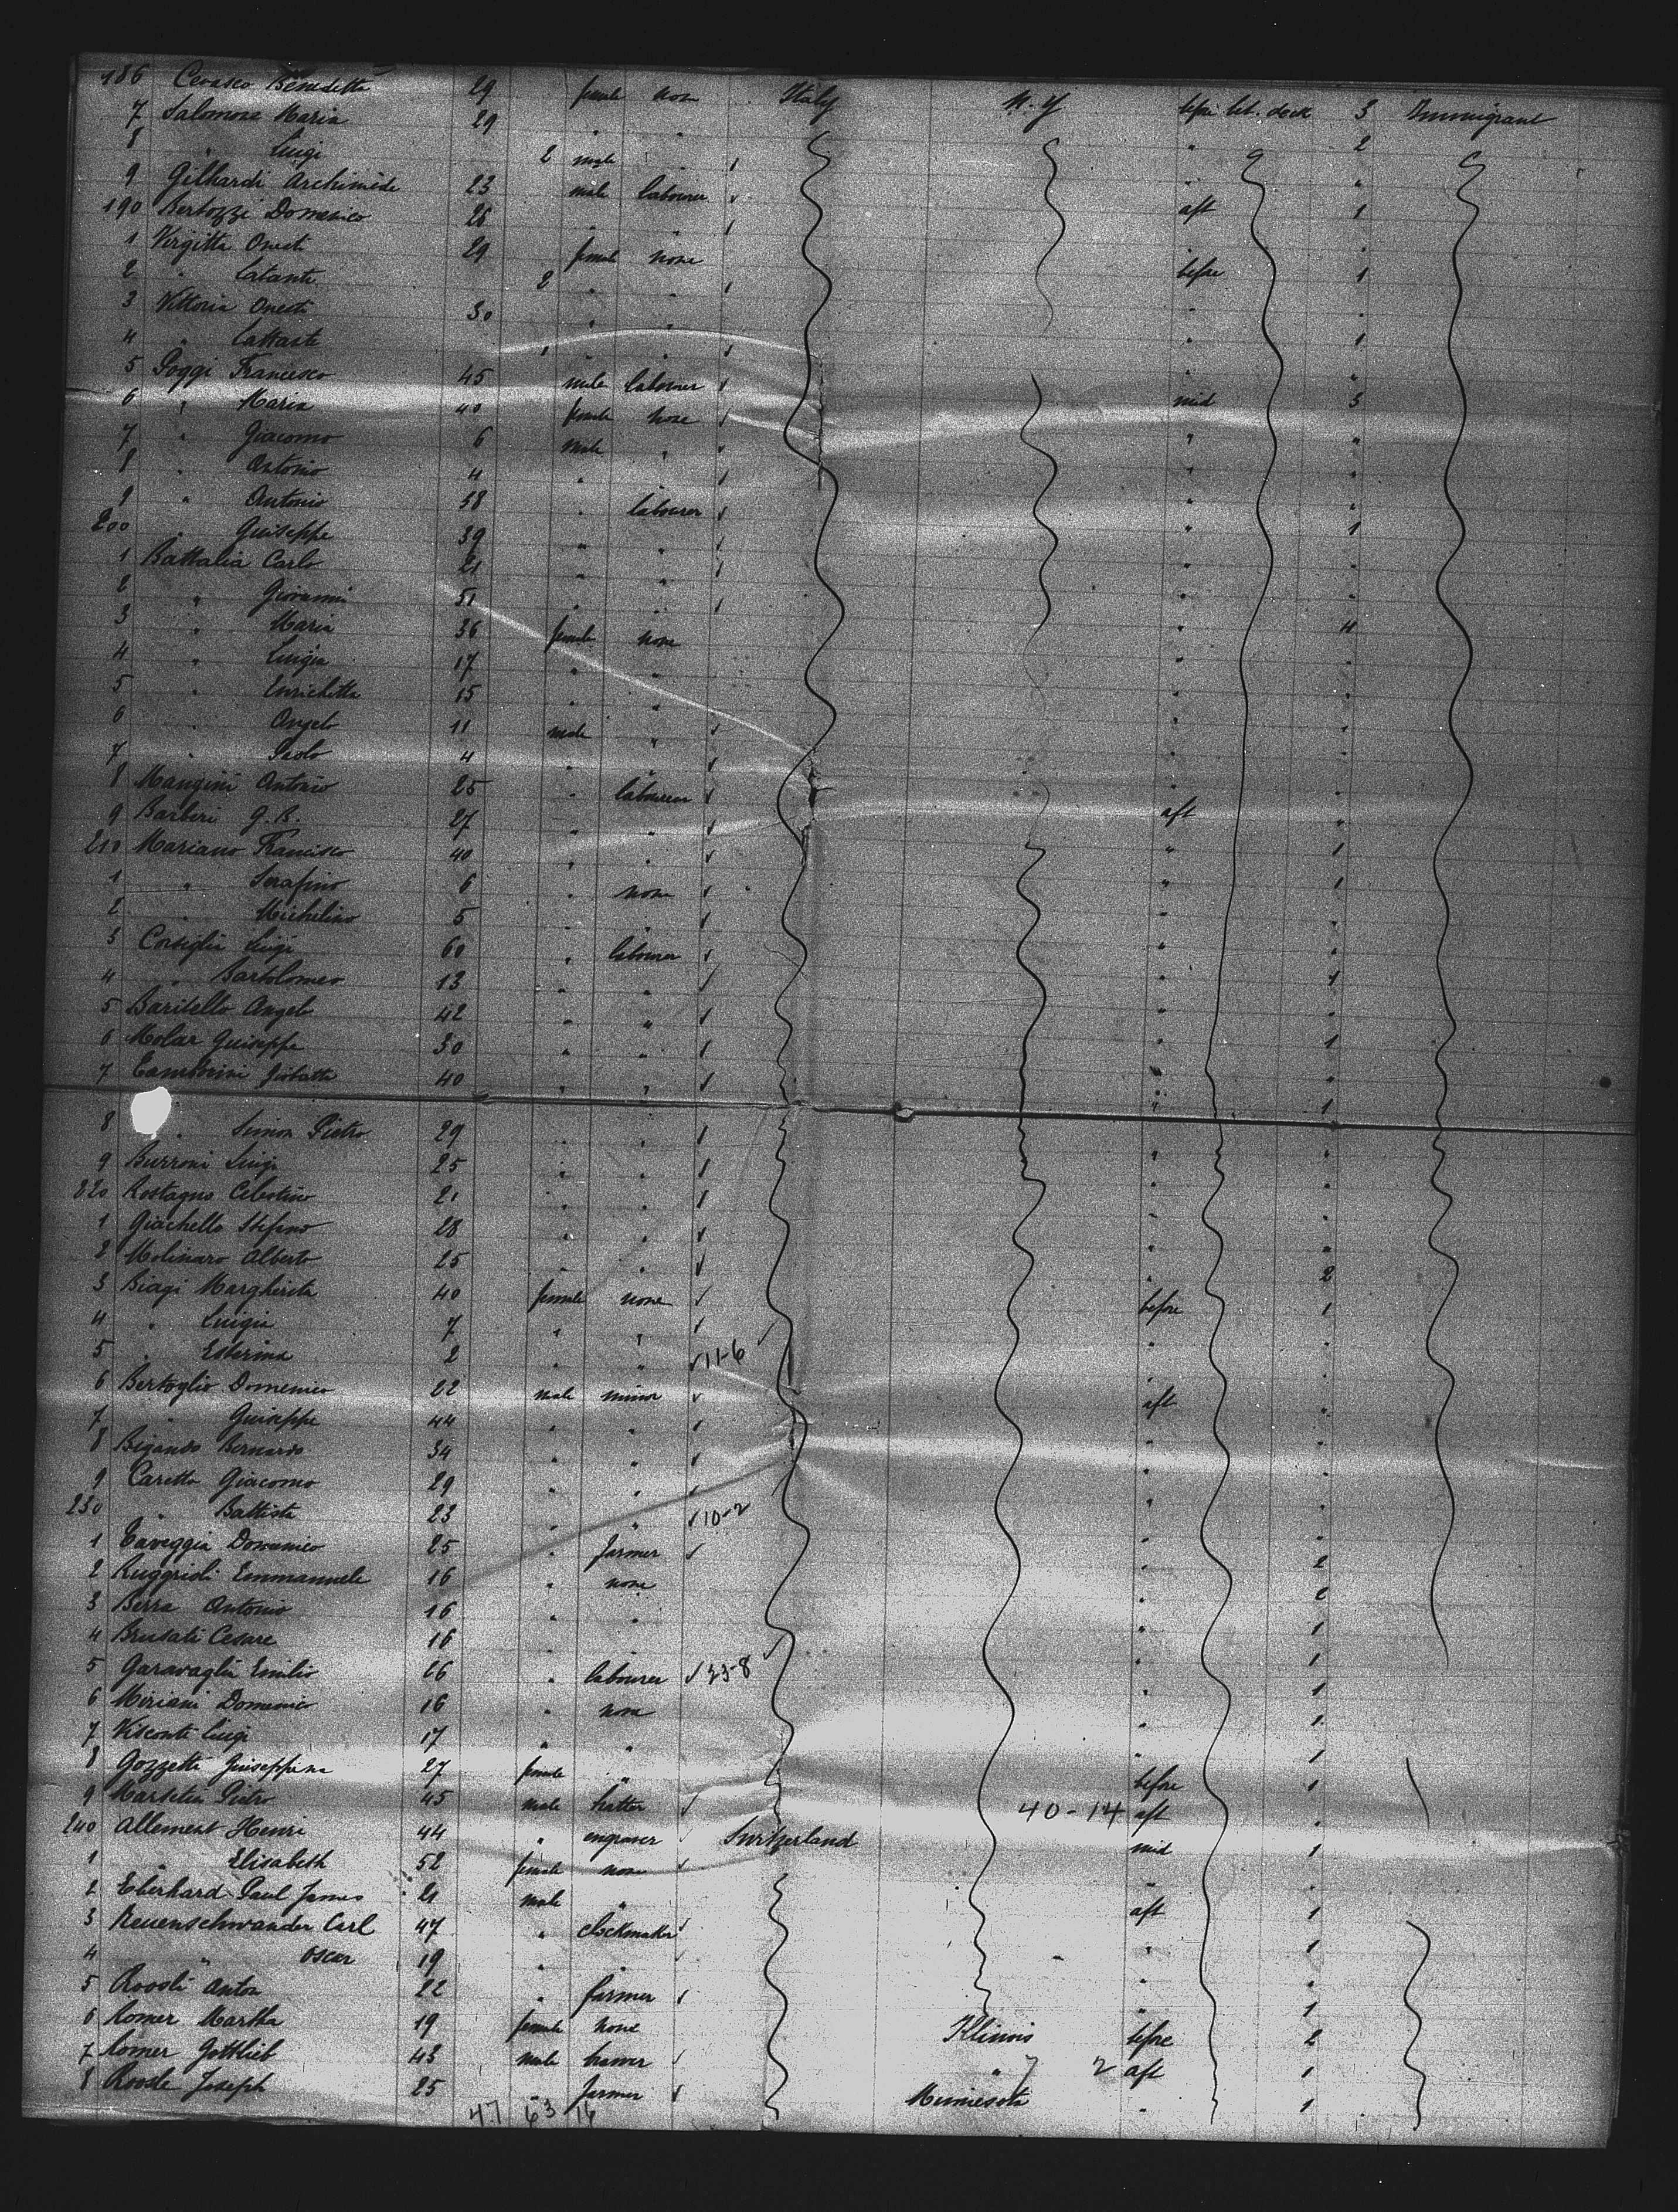 186 Cerasco Benedetta 29 female none Italy N. Y before bet. deck 3 Immigrant
7 Salomone Maria 29 " " " 2
8 " Luigi 2 male " "
9 Gilhardi Archimede 23 male labourer aft 1
190 Bertozzi Domenico 26 " " "
1 Virgitta Onesti 29 female none before 1
2 " 2 " " "
3 Vittoria Onesti 30 " " " 1
4 " " " "
5 Poggi Francesco 45 male labourer mid 3
6 " Maria 40 female none " "
7 " Giacomo 6 male " " "
8 " Antonio 4 " " " "
9 " Antonio 38 " labourer " 1
200 " Guiseppe 39 " " " "
1 Battalia Carlo 21 " " " "
2 " Giovanni 51 " " " 4
3 " Maria 36 female none " "
4 " Luigia 17 " " " "
5 " Enrichetta 15 " " " "
6 " Angelo 11 male " " "
7 " Paolo 4 " " " "
8 Mangini Antonio 25 " labourer aft "
9 Barberi G. B. 27 " " " 1
210 Mariano Francisco 40 " " " 1
1 " Serafino 6 " none " "
2 " Michelino 5 " " " "
3 Corsiglia Luigi 60 " labourer " 1
4 " Bartolomeo 13 " " " "
5 Baritello Angelo 42 " " " 1
6 Molar Guiseppe 30 " " " "
7 Tamborini Giobatta 40 " " " 1
8 " Simon Pietro 29 " " " "
9 Burroni Luigi 25 " " " "
220 Rostagno Celestino 21 " " " "
1 Giachello Stefano 28 " " " "
2 Molinaro Alberto 25 " " " 2
3 Biagi Margherita 40 female none before 1
4 " Luigia 7 " " " "
5 " Esterina 2 " " 11-6 " "
6 Bertoglio Domenico 22 male minor aft "
7 " Guiseppe 44 " " " "
8 Bigando Bernardo 34 " " " "
9 Caretto Giacomo 29 " " " "
230 " Battista 23 " " 10-2 " "
1 Taveggia Domenico 25 " farmer " 2
2 Ruggridi Emmanuele 16 " none " 2
3 Berra Antonio 16 " " " 1
4 Brusati Cesare 16 " " " 1
5 Garavaglia Emilio 26 " labourer 23-8 " 1
6 Miriani Domenico 16 " none " 1
7 Visconti Luigi 17 " " " 1
8 Gozzetti Guiseppina 27 female " before 1
9 Pietro 45 male hatter 40-14 aft "
240 Allement Henri 44 " engraver Switzerland mid 1
1 " Elisabeth 52 female none " "
2 Eberhard Paul James 21 male " aft 1
3 Neuenschwander Carl 47 " clockmaker " 1
4 " Oscar 19 " " " "
5 Roosli Anton 22 " farmer " 1
6 Romer Martha 19 female none Illinois before 2
7 Romer Gottlieb 43 male brewer " 7 2 aft 1
8 Roosle Joseph 25 " farmer Minnesota " 1
47 63 16